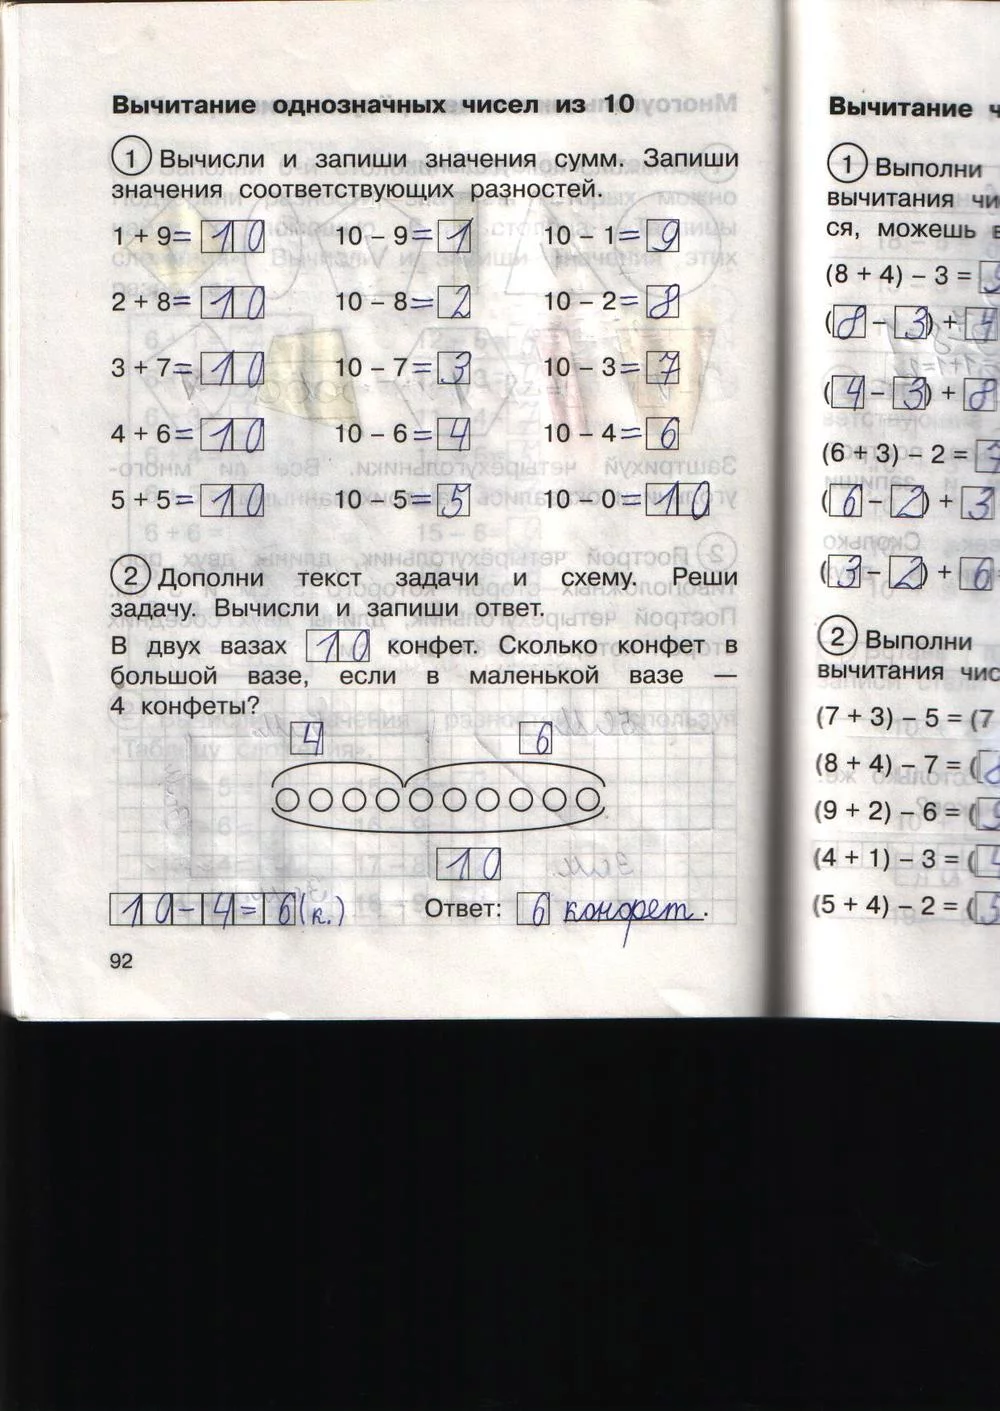 Вычитание однозначных чисел из 10
1 Вычисли и запиши значения сумм. Запиши
значения соответствующих разностей.
1 + 9 = 10 10 – 9 = 1 10 – 1 = 9
2 + 8 = 10 10 – 8 = 2 10 – 2 = 8
3 + 7 = 10 10 – 7 = 3 10 – 3 = 7
4 + 6 = 10 10 – 6 = 4 10 – 4 = 6
5 + 5 = 10 10 – 5 = 5 10 – 0 = 10
2 Дополни текст задачи и схему. Реши
задачу. Вычисли и запиши ответ.
В двух вазах 10 конфет. Сколько конфет в
большой вазе, если в маленькой вазе —
4 конфеты?
4 6
10
10 – 4 = 6 (к.) Ответ: 6 конфет.
92
Вычитание
1 Выполни
вычитания
ся, можешь
(8 + 4) – 3 =
(8 – 3) + 4
(4 – 3) + 8
(6 + 3) – 2 =
(6 – 2) + 3
(3 – 2) + 6
2 Выполни
вычитания
(7 + 3) – 5 = (7
(8 + 4) – 7 = (
(9 + 2) – 6 = (
(4 + 1) – 3 = (
(5 + 4) – 2 = (